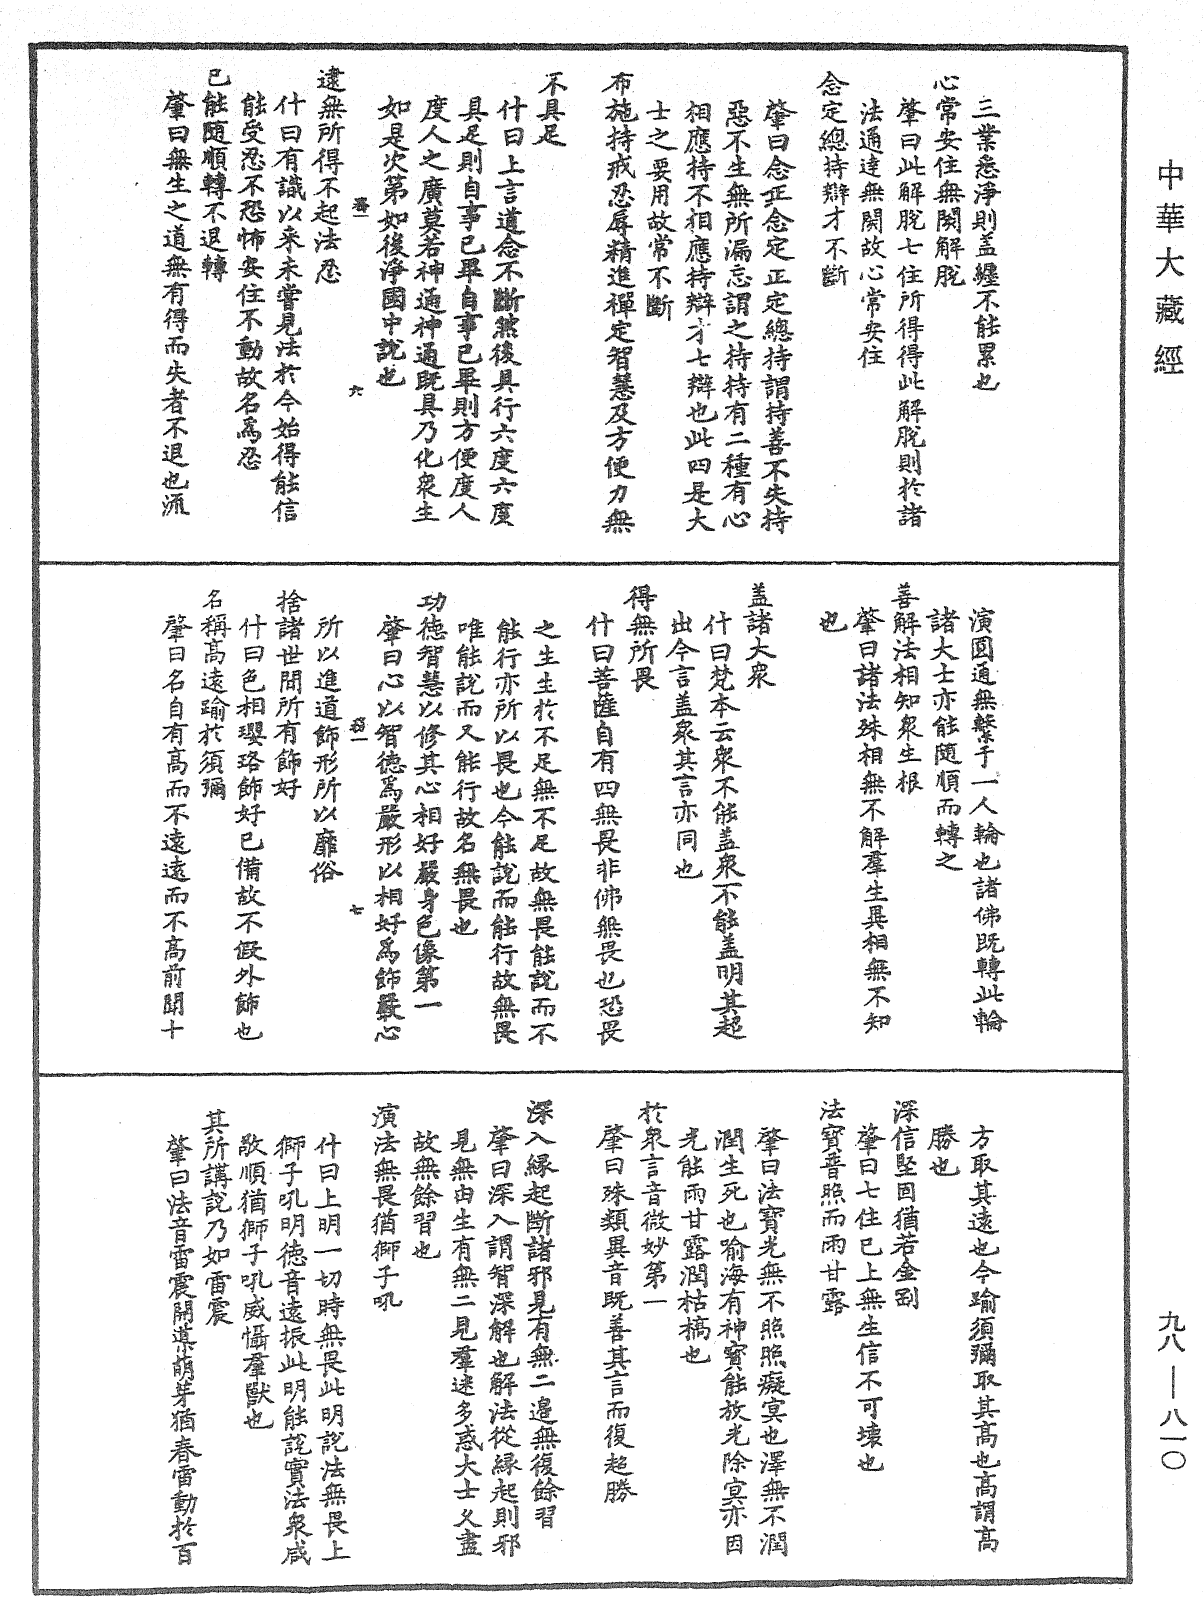 中華大藏經
三業悉淨則盖纏不能累也
心常安住無閡解脫
肇曰此解脫七住所得得此解脫則於諸
法通達無閡故心常安住
念定總持辯才不斷
肇曰念正念定正定總持謂持善不失持
惡不生無所漏忘謂之持持有二種有心
相應持不相應持辯才七辯也此四是大
士之要用故常不斷
布施持戒忍辱精進禪定智慧及方便力無
不具足
什曰上言道念不斷然後具行六度六度
具足則自事已畢自事已畢則方便度人
度人之廣莫若神通神通既具乃化衆生
如是次第如後淨國中說也
六
逮無所得不起法忍
什曰有識以来未嘗見法於今始得能信
能受忍不恐怖安住不動故名爲忍
已能隨順轉不退轉
肇曰無生之道無有得而失者不退也流
演圓通無繫于一人輪也諸佛既轉此輪
諸大士亦能隨順而轉之
善解法相知衆生根
肇曰諸法殊相無不解羣生異相無不知
也
盖諸大衆
什曰梵本云衆不能盖衆不能盖明其超
出今言盖衆其言亦同也
得無所畏
什曰菩薩自有四無畏非佛無畏也恐畏
之生生於不足無不足故無畏能說而不
能行亦所以畏也今能說而能行故無畏
唯能說而又能行故名無畏也
功徳智慧以修其心相好嚴身色像第一
肇曰心以智徳爲嚴形以相好爲飾嚴心
七
所以進道飾形所以靡俗
捨諸世間所有飾好
什曰色相瓔珞飾好已備故不假外飾也
名稱高遠踰於須彌
肇曰名自有高而不遠遠而不高前聞十
方取其遠也今踰須彌取其高也高謂高
勝也
深信堅固猶若金剛
肇曰七住已上無生信不可壊也
法寶普照而雨甘露
肇曰法寶光無不照照癡冥也澤無不潤
潤生死也喻海有神寶能放光除冥亦因
光能雨甘露潤枯槁也
於衆言音微妙第一
肇曰殊類異音既善其言而復超勝
深入縁起斷諸邪見有無二邊無復餘習
肇曰深入謂智深解也解法從縁起則邪
見無由生有無二見羣迷多惑大士乆盡
故無餘習也
演法無畏猶獅子吼
什曰上明一切時無畏此明說法無畏上
獅子吼明徳音遠振此明能說實法衆咸
敬順猶獅子吼威懾羣獸也
其所講說乃如雷震
肇曰法音雷震開導萌芽猶春雷動於百
九八—八一〇